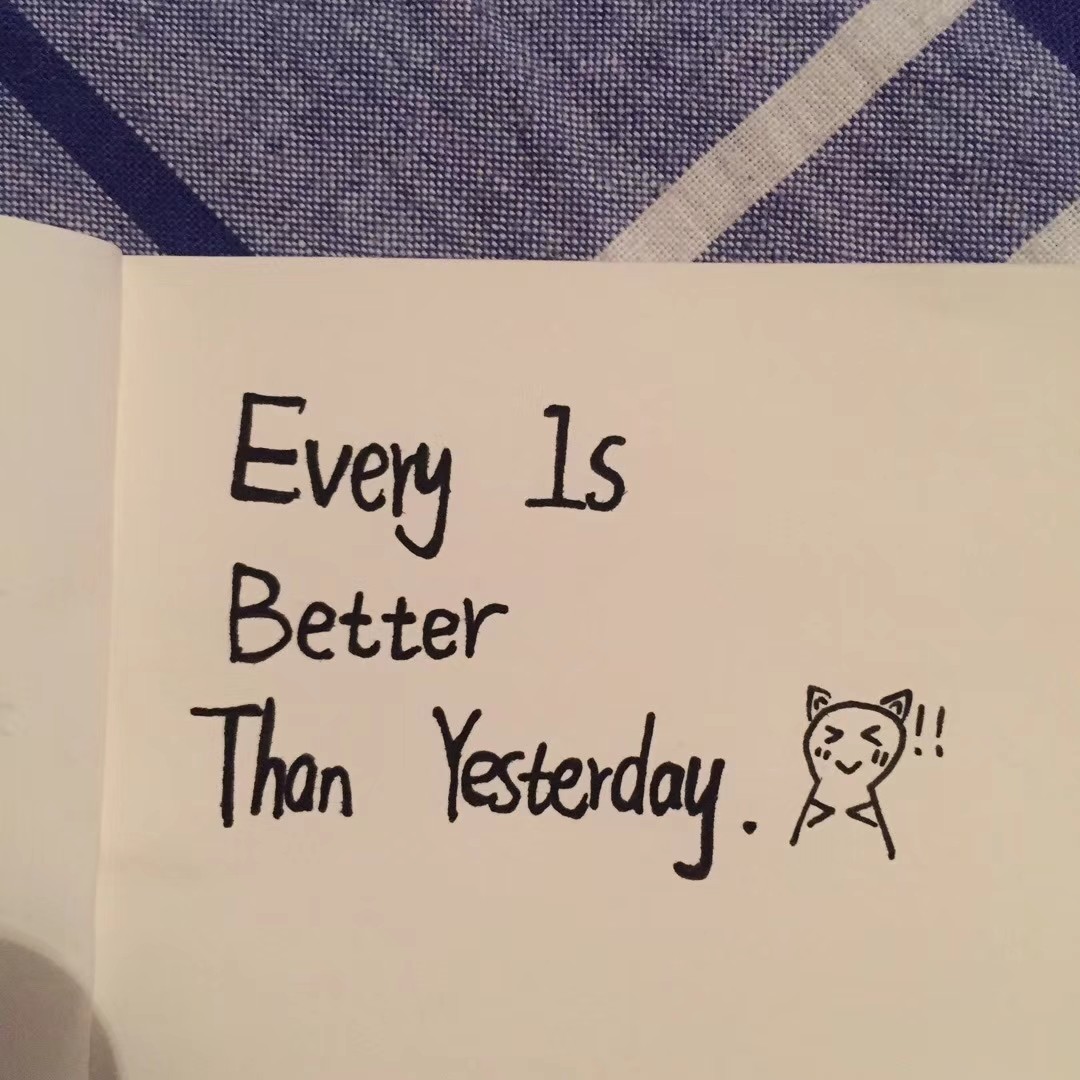 Every Is
Better
Than Yesterday. !!